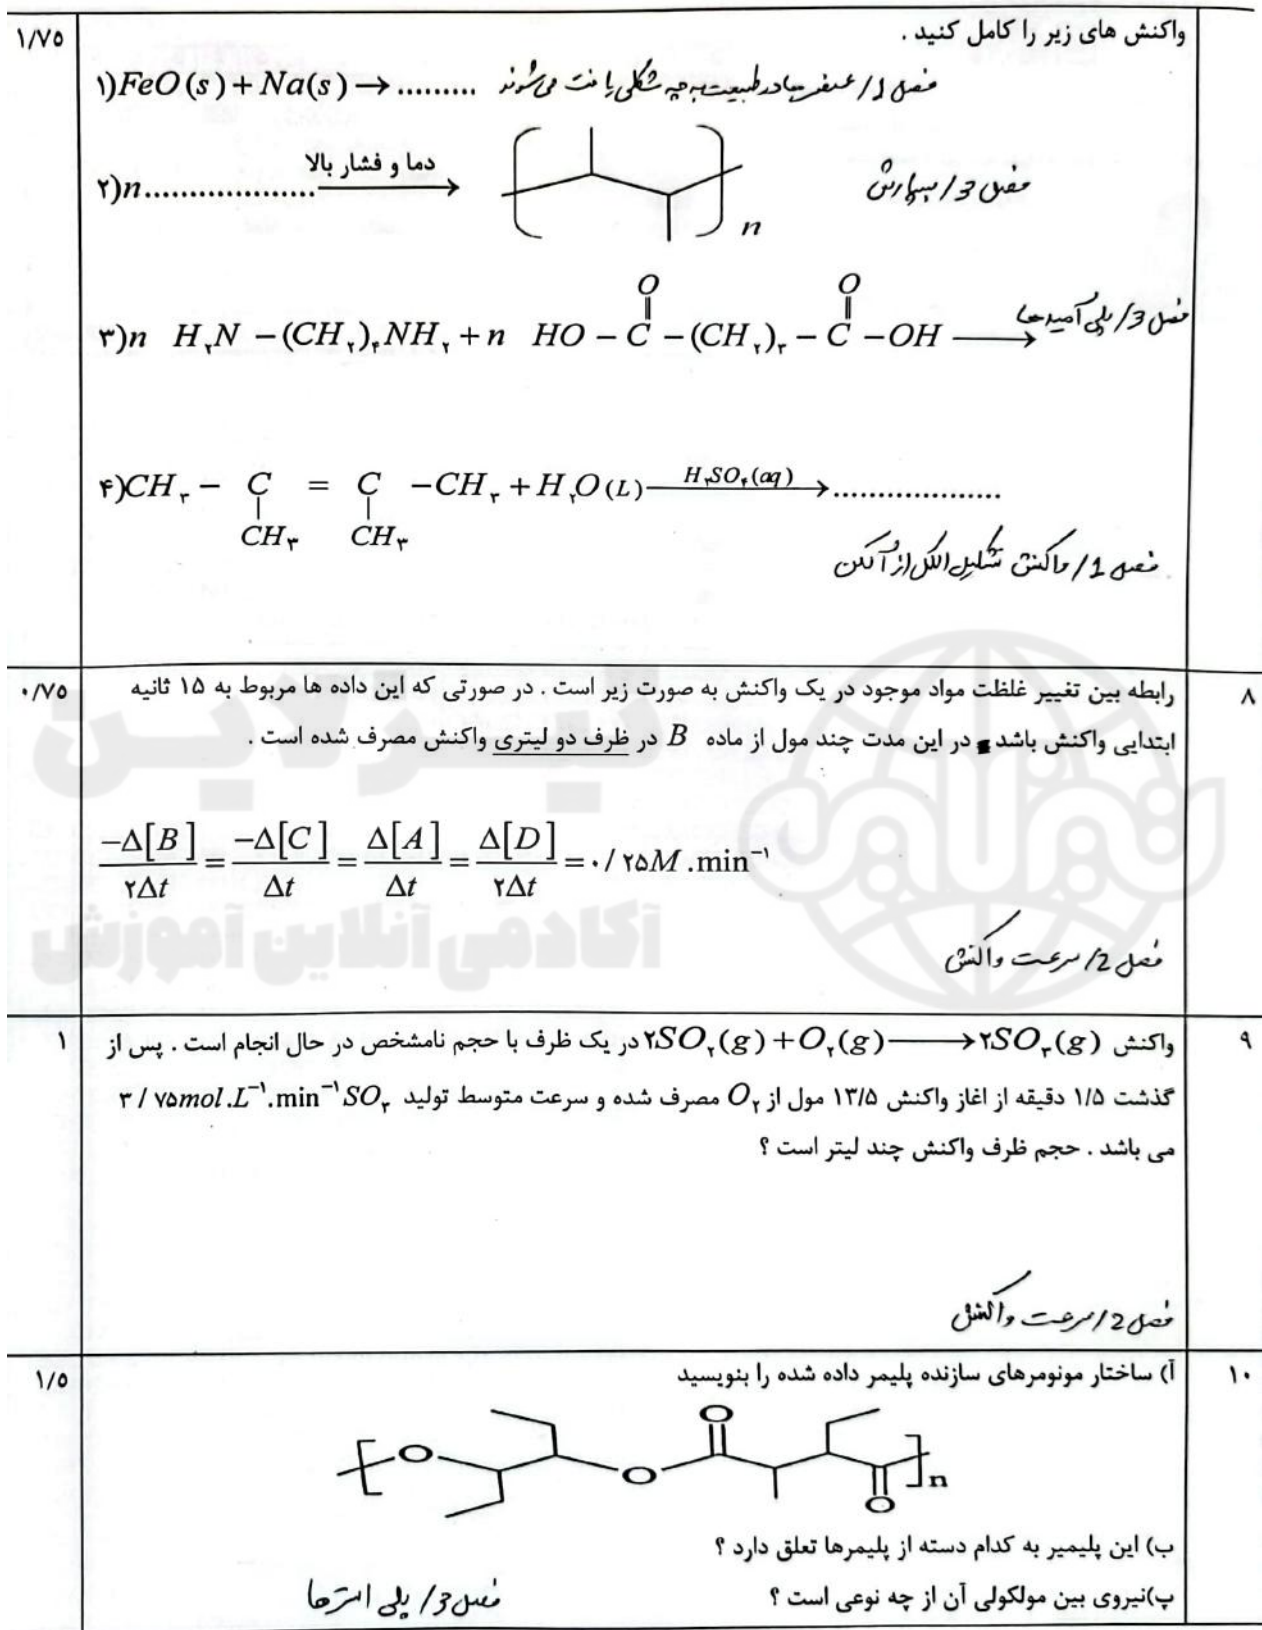 ۱/۷۵
واکنش های زیر را کامل کنید .
۱)FeO(s) + Na(s) → ......... فصل 1/ عنصرها در طبیعت به چه شکلی یافت می شوند
۲)n................... دما و فشار بالا → n فصل 3/ بسپارش
O O
۳)n H₂N – (CH₂)₄NH₂ + n HO – C – (CH₂)₃ – C – OH → فصل 3/ پلی آمیدها
۴)CH₃ – C = C – CH₃ + H₂O(L) H₂SO₄(aq) → ...................
CH₃ CH₃
فصل 1/ واکنش تشکیل الکل از آلکن
۸ ۰/۷۵
رابطه بین تغییر غلظت مواد موجود در یک واکنش به صورت زیر است . در صورتی که این داده ها مربوط به ۱۵ ثانیه
ابتدایی واکنش باشد در این مدت چند مول از ماده B در ظرف دو لیتری واکنش مصرف شده است .
−Δ[B]/۲Δt = −Δ[C]/Δt = Δ[A]/Δt = Δ[D]/۲Δt = ۰/۲۵M.min⁻¹
فصل 2/ سرعت واکنش
تیزلاین
آکادمی آنلاین آموزش
۹ ۱
واکنش ۲SO₂(g) + O₂(g) → ۲SO₃(g) در یک ظرف با حجم نامشخص در حال انجام است . پس از
گذشت ۱/۵ دقیقه از اغاز واکنش ۱۳/۵ مول از O₂ مصرف شده و سرعت متوسط تولید ۳/۷۵mol.L⁻¹.min⁻¹ SO₃
می باشد . حجم ظرف واکنش چند لیتر است ؟
فصل 2/ سرعت واکنش
۱۰ ۱/۵
آ) ساختار مونومرهای سازنده پلیمر داده شده را بنویسید
O
O O n
O
ب) این پلیمیر به کدام دسته از پلیمرها تعلق دارد ؟
پ)نیروی بین مولکولی آن از چه نوعی است ؟
فصل 3/ پلی استرها